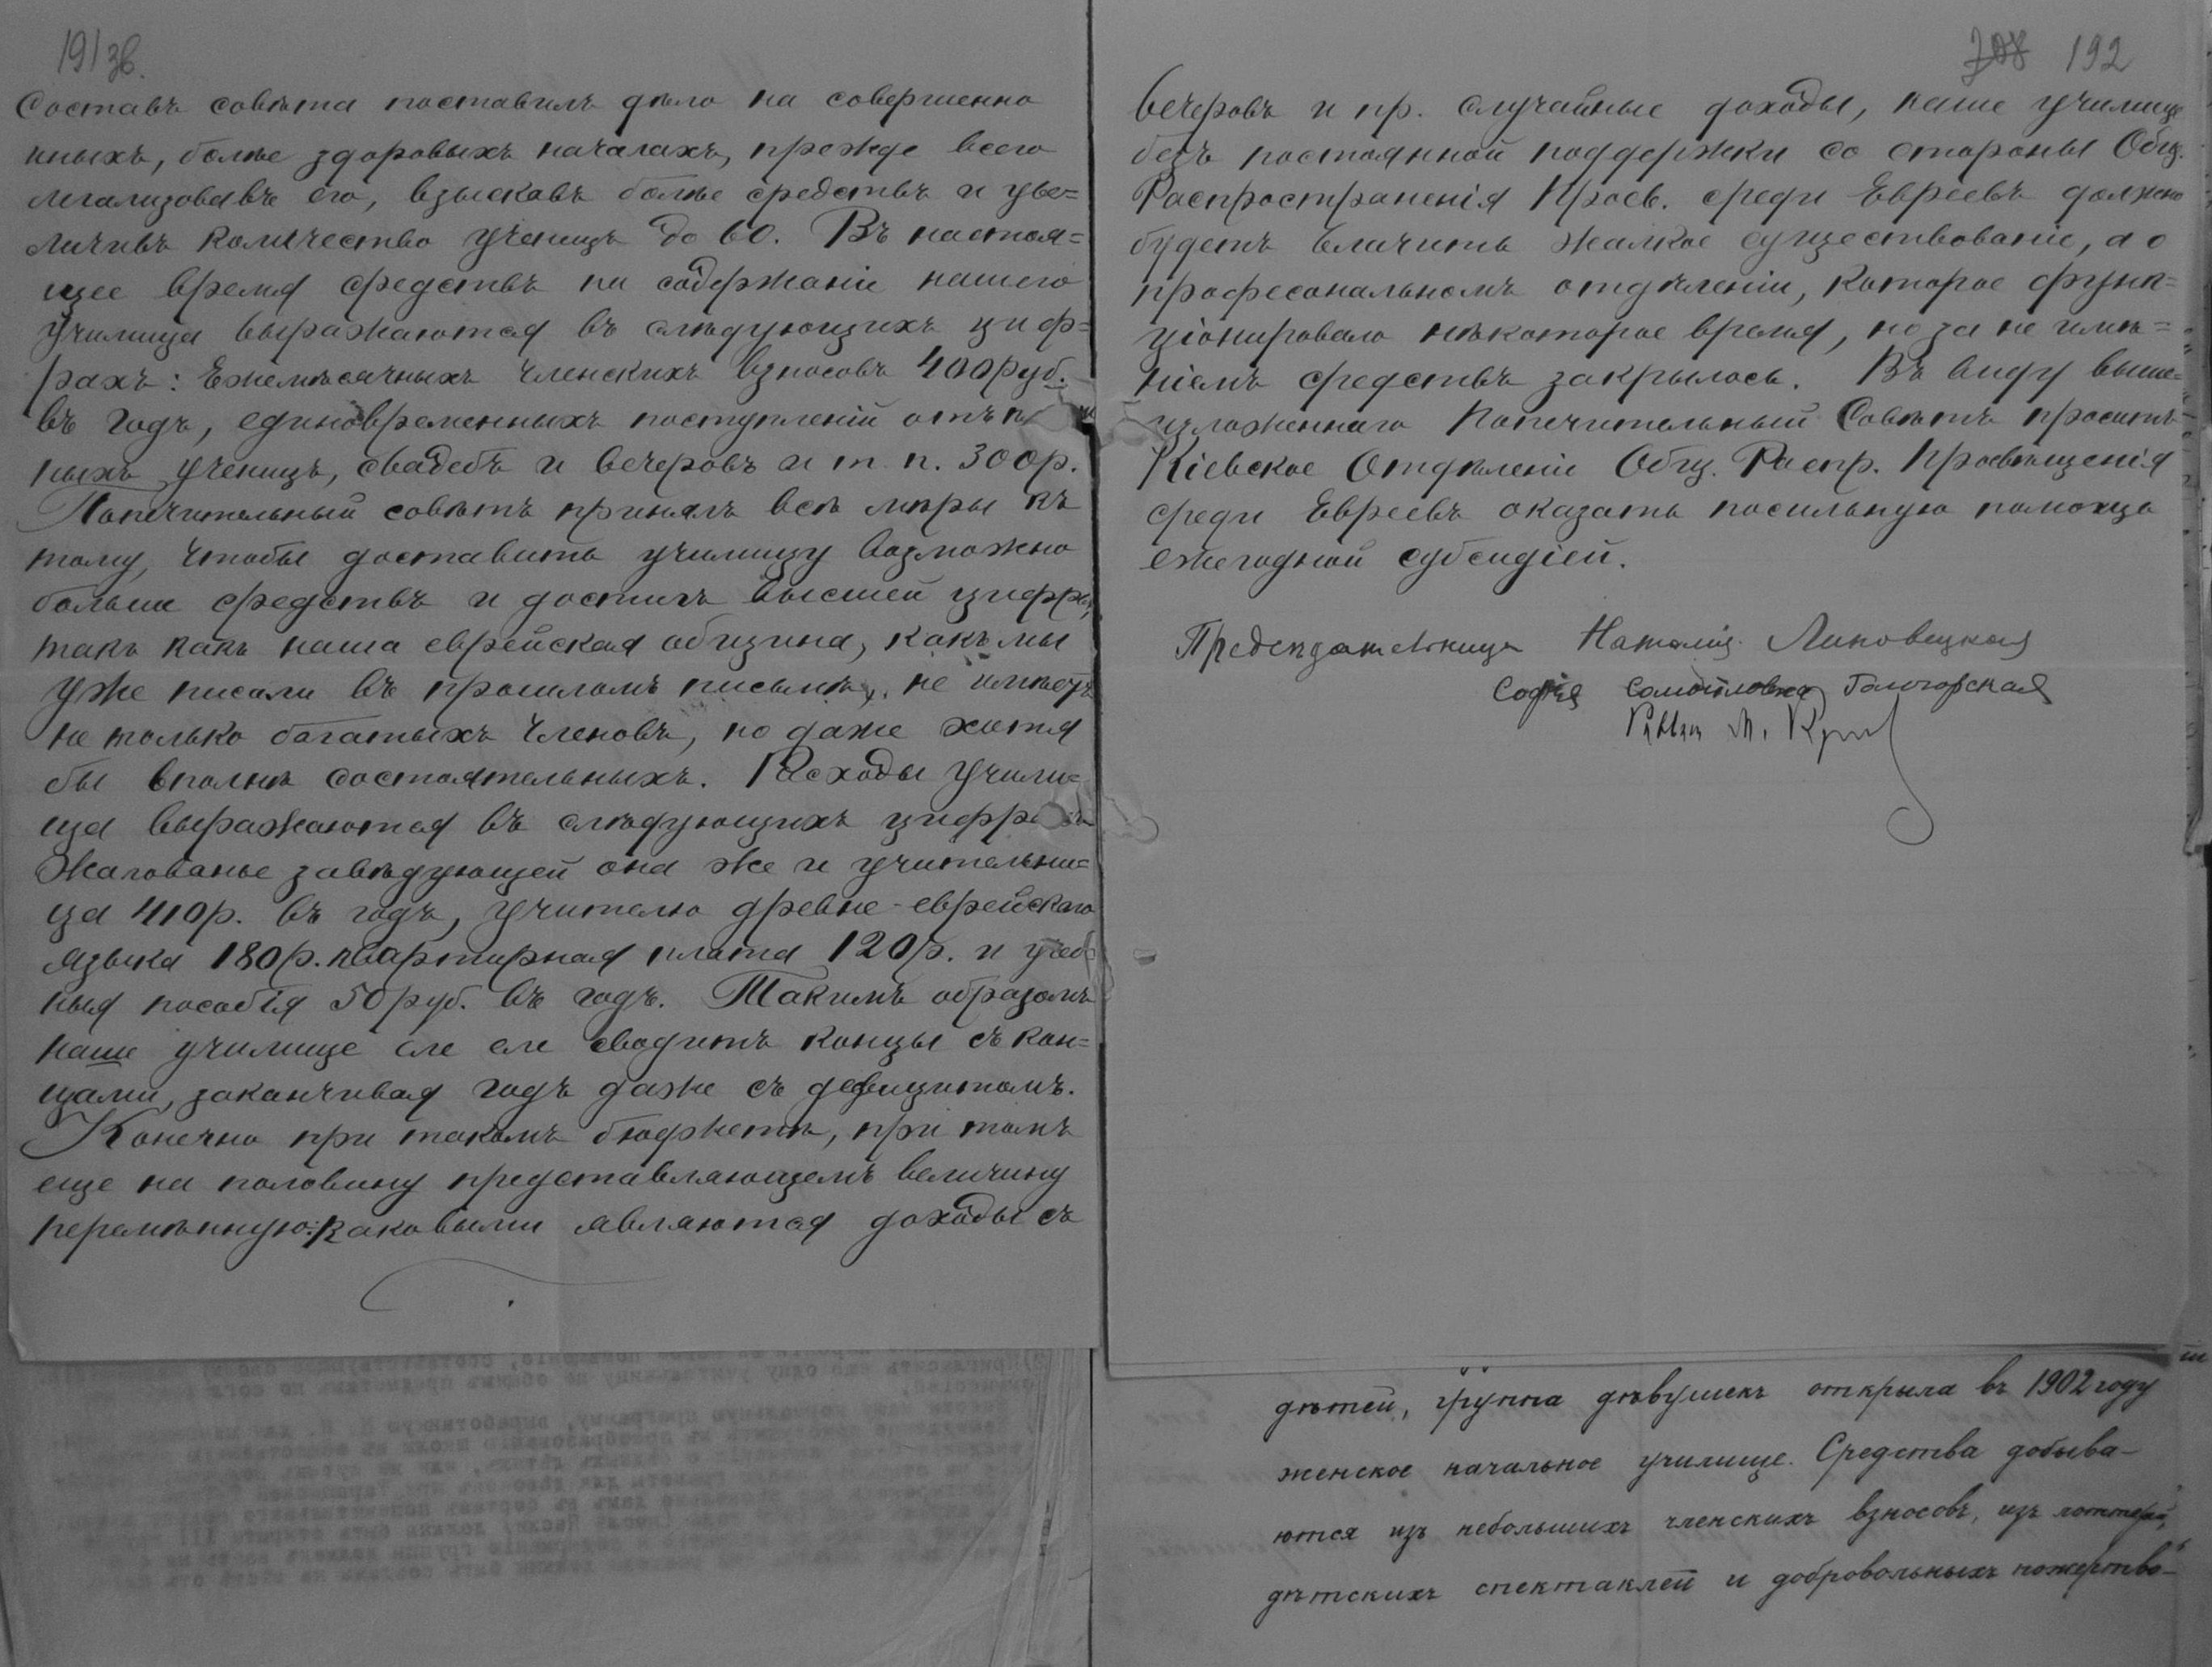 191 зв.
Составъ совѣта поставилъ дѣло на совершенно
иныхъ, болѣе здоровыхъ началахъ, прежде всего
легализовавъ его, взыскавъ болѣе средствъ и уве=
личивъ количество ученицъ до 60. Въ настоя=
щее время средствъ на содержаніе нашего
училища выражаются въ слѣдующихъ циф=
рахъ: Ежемѣсячныхъ членскихъ взносовъ 400 руб.
въ годъ, единовременныхъ поступленій отъ
ныхъ ученицъ, свадебъ и вечеровъ и т. п. 300р.
Попечительный совѣтъ принялъ всѣ мѣры къ
тому, чтобы доставить училищу возможно
больше средствъ и достигъ высшей цифры,
такъ какъ наша еврейская община, какъ мы
уже писали въ прошломъ письмѣ, не имѣетъ
не только богатыхъ членовъ, но даже хотя
бы вполнѣ состоятельныхъ. Расходы учили=
ща выражаются въ слѣдующихъ цифрахъ
Жалованье завѣдующей она же и учительни=
ца 410р. въ годъ, учителю древне-еврейскаго
языка 180р. квартирная плата 120р. и учеб
ныя пособія 50 руб. въ годъ. Такимъ образомъ
наше училище еле еле сводитъ концы съ кон=
цами, заканчивая годъ даже съ дефицитомъ.
Конечно при такомъ бюджетѣ, при томъ
еще на половину представляющемъ величину
перемѣнную: каковыми являются доходы съ
192
вечеровъ и пр. случайные доходы, наше училище
безъ постоянной поддержки со стороны Общ.
Распространенія Просв. среди Евреевъ должно
будетъ влачить жалкое существованіе, а о
професональномъ отдѣленіи, которое функ=
ціонировало нѣкоторое время, но за не имѣ=
ніемъ средствъ закрылось. Въ виду выше=
изложеннаго Попечительный Совѣтъ проситъ
Кіевское Отдѣленіе Общ. Распр. Просвѣщенія
среди Евреевъ оказать посильную помощь
ежегодной субсидіей.
Предсѣдательница Наталія Липовецкая
Софія Самойловна Гологорская
М.
дѣтей, группа дѣвушекъ открыла въ 1902 году
женское начальное училище. Средства добыва-
ются изъ небольшихъ членскихъ взносовъ, изъ лоттерей,
дѣтскихъ спектаклей и добровольныхъ пожертво-